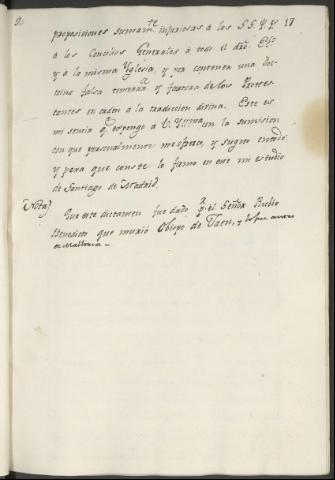 proposiciones sumam.te injuriosas a los S.S. P.P. 17
a los Concilios Generales à todo el
y a la misma Yglesia, y pra contener una doc-
trina falsa temerar.a y factora de los Protes-
tantes en orden à la tradicion divina. Este es
mi sentir q.e expongo à V. con la sumision
con que personalmente me ofrezco, y sugeto en todo:
y para que conste lo firmo en este mi estudio
de Santiago de Madrid.
(Nota)
Que este dictamen fue dado p.r el Señor Rubio
Benedicto que murió Obispo de Jaen, y lo fue antes
de Mallorca.